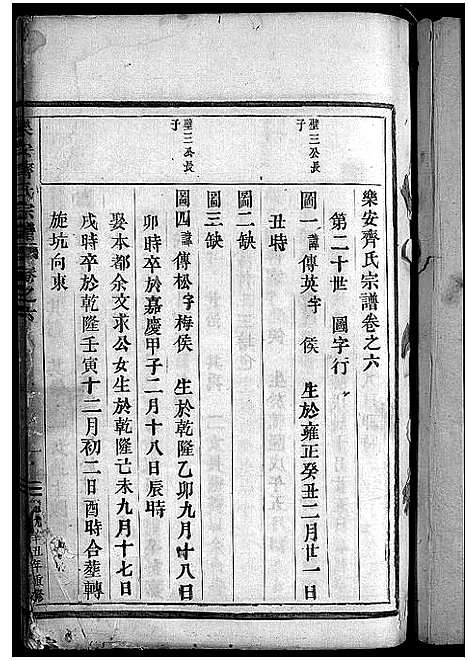 樂安齊氏宗譜卷之六
第二十世 圖字行
璧三公長子
圖一諱傳英字 侯 生於雍正癸丑二月廿一日
丑時
圖二缺
圖三缺
璧三公長子
圖四諱傳松字梅侯 生於乾隆乙卯九月十八日
卯時卒於嘉慶甲子二月十八日辰時
娶本都余文求公女生於乾隆己未九月十七日
戌時卒於乾隆壬寅十二月初二日酉時合葬轉
旋坑向東
宗譜 卷之六
辛丑年重修